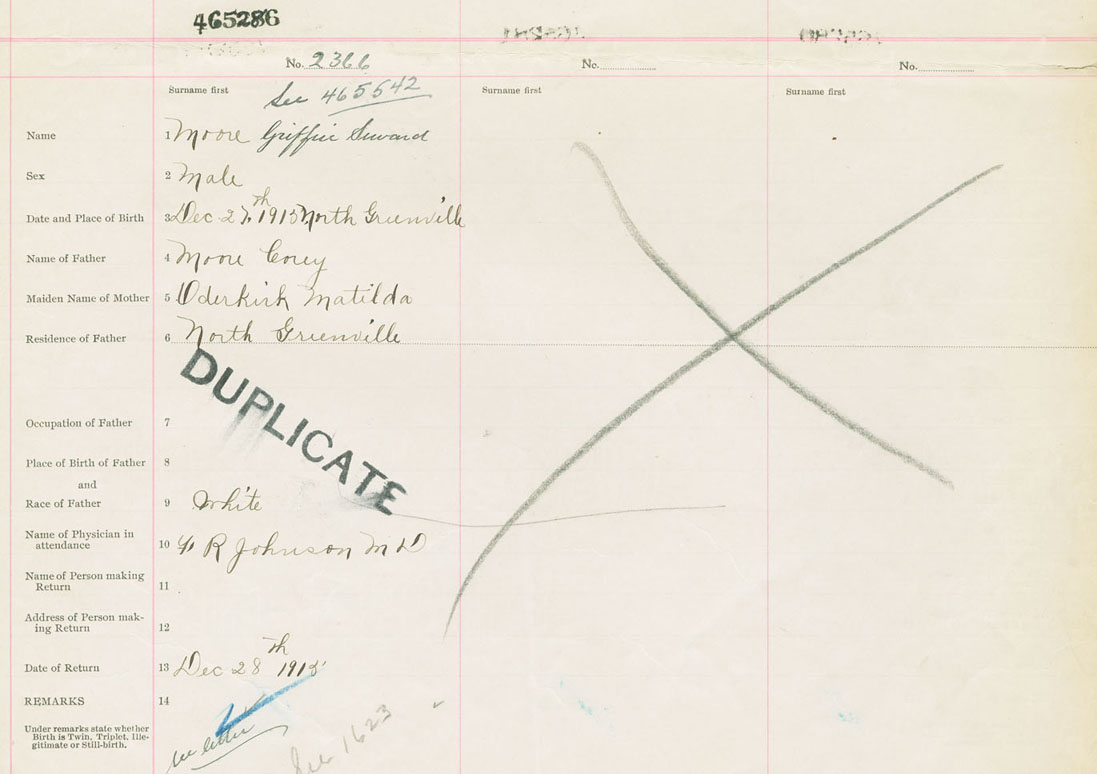 465286
No. 2366
No.
No.
Surname first
Surname first
Surname first
See 465542
Name 1 Moore Griffin Seward
Sex 2 Male
Date and Place of Birth 3 Dec 27th 1915 North Greenville
Name of Father 4 Moore Corey
Maiden Name of Mother 5 Oderkirk Matilda
Residence of Father 6 North Greenville
DUPLICATE
Occupation of Father 7
Place of Birth of Father 8
and
Race of Father 9 White
Name of Physician in
attendance 10 R Johnson M D
Name of Person making
Return 11
Address of Person mak-
ing Return 12
Date of Return 13 Dec 28th 1915
REMARKS 14
Under remarks state whether
Birth is Twin, Triplet, Ille-
gitimate or Still-birth.
see letter
See 1623